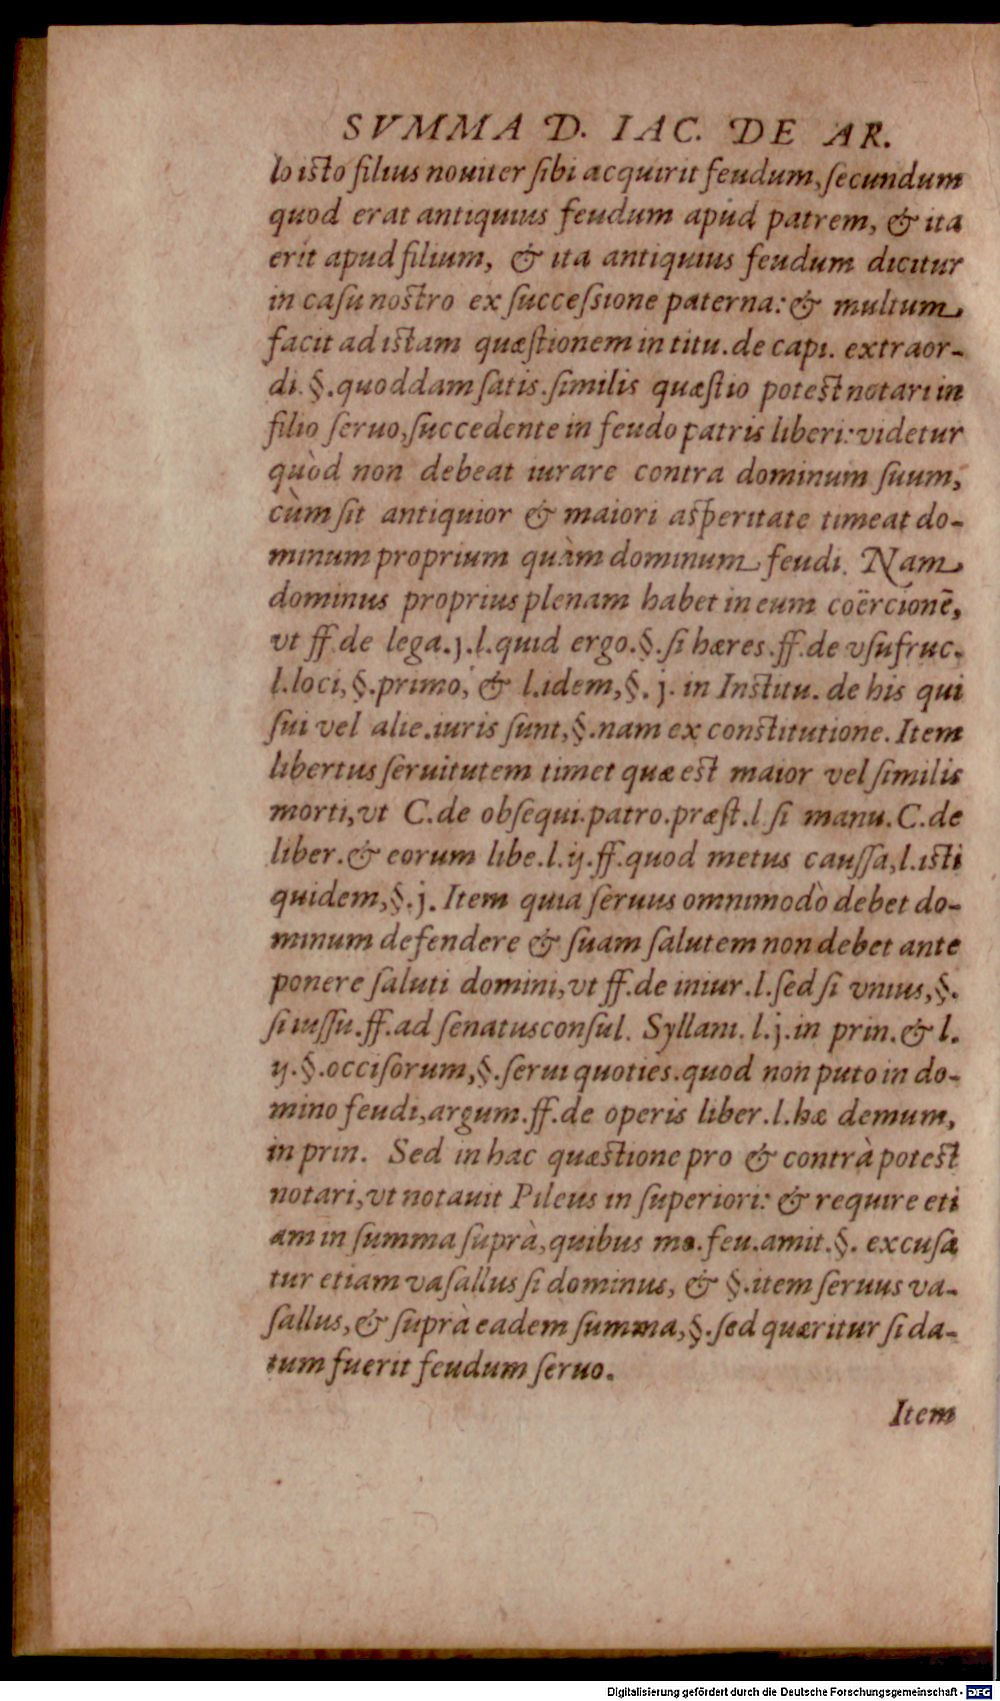 SVMMA D. IAC. DE AR.
lo isto filius nouiter sibi acquirit feudum, secundum
quod erat antiquius feudum apud patrem, & ita
erit apud filium, & ita antiquius feudum dicitur
in casu nostro ex successione paterna: & multum
facit ad istam quæstionem in titu. de capi. extraor-
di. §. quoddam satis. similis quæstio potest notari in
filio seruo, succedente in feudo patris liberi: videtur
quòd non debeat iurare contra dominum suum,
cùm sit antiquior & maiori asperitate timeat do-
minum proprium quàm dominum feudi. Nam
dominus proprius plenam habet in eum coërcionē,
vt ff. de lega. j. l. quid ergo. §. si hæres. ff. de vsufruc.
l. loci, §. primo, & l. idem, §. j. in Institu. de his qui
sui vel alie. iuris sunt, §. nam ex constitutione. Item
libertus seruitutem timet quæ est maior vel similis
morti, vt C. de obsequi. patro. præst. l. si manu. C. de
liber. & eorum libe. l. ij. ff. quod metus caussa, l. isti
quidem, §. j. Item quia seruus omnimodò debet do-
minum defendere & suam salutem non debet ante
ponere saluti domini, vt ff. de iniur. l. sed si vnius, §.
si iussu. ff. ad senatusconsul. Syllani. l. j. in prin. & l.
ij. §. occisorum, §. serui quoties. quod non puto in do-
mino feudi, argum. ff. de operis liber. l. hæ demum,
in prin. Sed in hac quæstione pro & contrà potest
notari, vt notauit Pileus in superiori: & require eti
am in summa suprà, quibus mo. feu. amit. §. excusa
tur etiam vasallus si dominus, & §. item seruus va-
sallus, & suprà eadem summa, §. sed quæritur si da-
tum fuerit feudum seruo.
Item
Digitalisierung gefördert durch die Deutsche Forschungsgemeinschaft - DFG